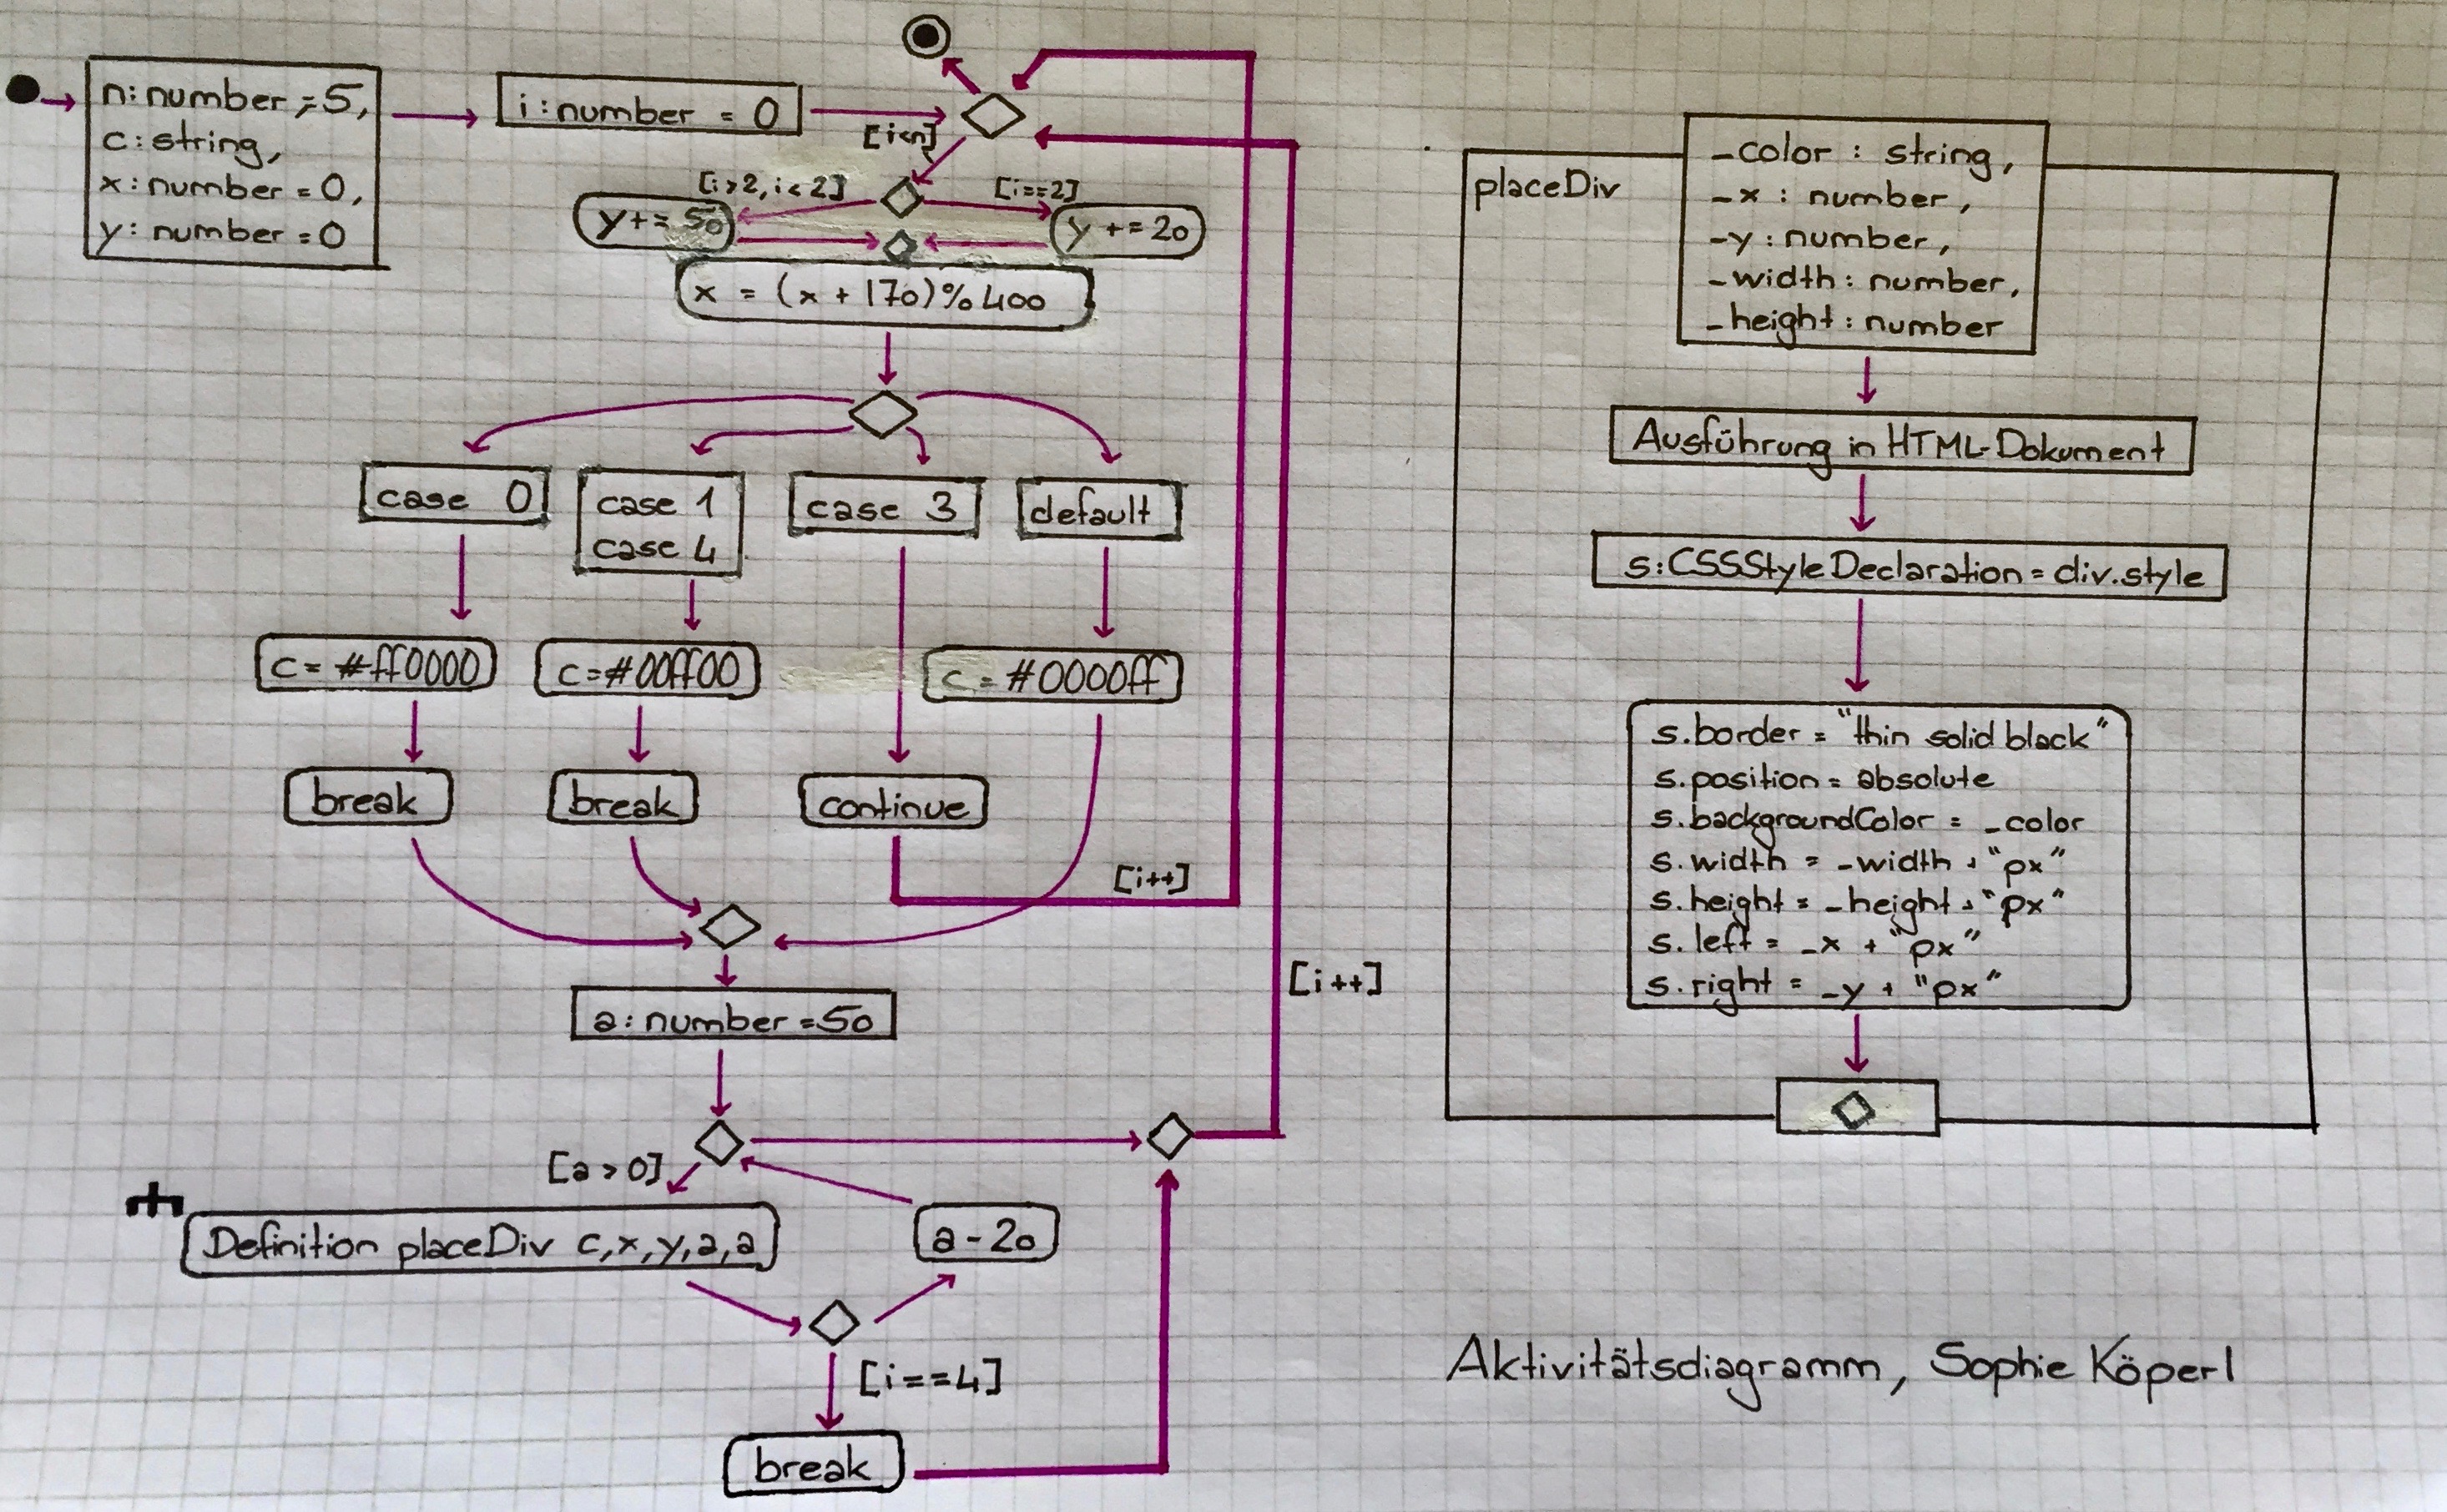 n:number = 5,
c:string,
x:number = 0,
y: number = 0
i:number = 0
[i<n]
[i>2, i<2]
[i==2]
y+= 50
y += 20
x = (x + 170) % 400
case 0
case 1
case 4
case 3
default
c= #ff0000
c=#00ff00
c = #0000ff
break
break
continue
[i++]
[i++]
a:number =50
[a > 0]
Definition placeDiv c,x,y,a,a
a - 20
[i==4]
break
placeDiv
_color : string,
_x : number,
_y : number,
_width : number,
_height : number
Ausführung in HTML-Dokument
s:CSSStyleDeclaration = div.style
s.border = "thin solid black"
s.position = absolute
s.backgroundColor = _color
s.width = _width + "px"
s.height = _height + "px"
s.left = _x + "px"
s.right = _y + "px"
Aktivitätsdiagramm, Sophie Köperl